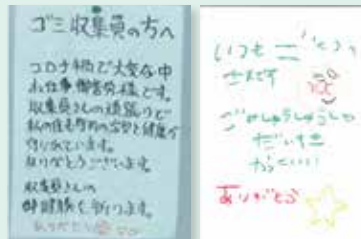 ゴミ収集員の方へ
コロナ禍で大変な中
お仕事御苦労様です。
収集員さんの頑張りで
私の住む町の安全と健康が
守られています。
ありがとうございます。
収集員さんの
御健勝を祈ります。
ありがとう
いつも
さんです
ごみしゅうしゅうしゃ
だいすき
かっこいい
ありがとう